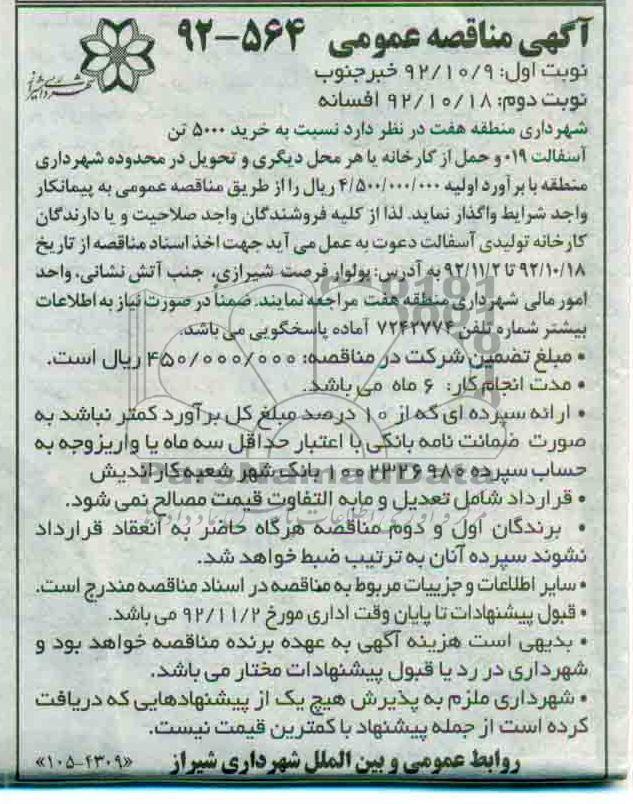 آگهی مناقصه عمومی ۵۶۴-۹۲
نوبت اول: ۹۲/۱۰/۹ خبرجنوب
نوبت دوم: ۹۲/۱۰/۱۸ افسانه
شهرداری منطقه هفت در نظر دارد نسبت به خرید ۵۰۰۰ تن
آسفالت ۰۱۹ و حمل از کارخانه یا هر محل دیگری و تحویل در محدوده شهرداری
منطقه با برآورد اولیه ۴/۵۰۰/۰۰۰/۰۰۰ ریال را از طریق مناقصه عمومی به پیمانکار
واجد شرایط واگذار نماید. لذا از کلیه فروشندگان واجد صلاحیت و یا دارندگان
کارخانه تولیدی آسفالت دعوت به عمل می آید جهت اخذ اسناد مناقصه از تاریخ
۹۲/۱۰/۱۸ تا ۹۲/۱۱/۲ به آدرس: بولوار فرصت شیرازی، جنب آتش نشانی، واحد
امور مالی شهرداری منطقه هفت مراجعه نمایند. ضمناً در صورت نیاز به اطلاعات
بیشتر شماره تلفن ۷۲۴۲۷۷۴ آماده پاسخگویی می باشد.
• مبلغ تضمین شرکت در مناقصه: ۴۵۰/۰۰۰/۰۰۰ ریال است.
• مدت انجام کار: ۶ ماه می باشد.
• ارائه سپرده ای که از ۱۰ درصد مبلغ کل برآورد کمتر نباشد به
صورت ضمانت نامه بانکی با اعتبار حداقل سه ماه یا واریز وجه به
حساب سپرده ۱۰۰۲۳۲۶۹۸۰ بانک شهر شعبه کاراندیش
• قرارداد شامل تعدیل و مابه التفاوت قیمت مصالح نمی شود.
• برندگان اول و دوم مناقصه هرگاه حاضر به انعقاد قرارداد
نشوند سپرده آنان به ترتیب ضبط خواهد شد.
• سایر اطلاعات و جزییات مربوط به مناقصه در اسناد مناقصه مندرج است.
• قبول پیشنهادات تا پایان وقت اداری مورخ ۹۲/۱۱/۲ می باشد.
• بدیهی است هزینه آگهی به عهده برنده مناقصه خواهد بود و
شهرداری در رد یا قبول پیشنهادات مختار می باشد.
• شهرداری ملزم به پذیرش هیچ یک از پیشنهادهایی که دریافت
کرده است از جمله پیشنهاد با کمترین قیمت نیست.
روابط عمومی و بین الملل شهرداری شیراز «۱۰۵-۴۳۰۹»
ParsNamadData